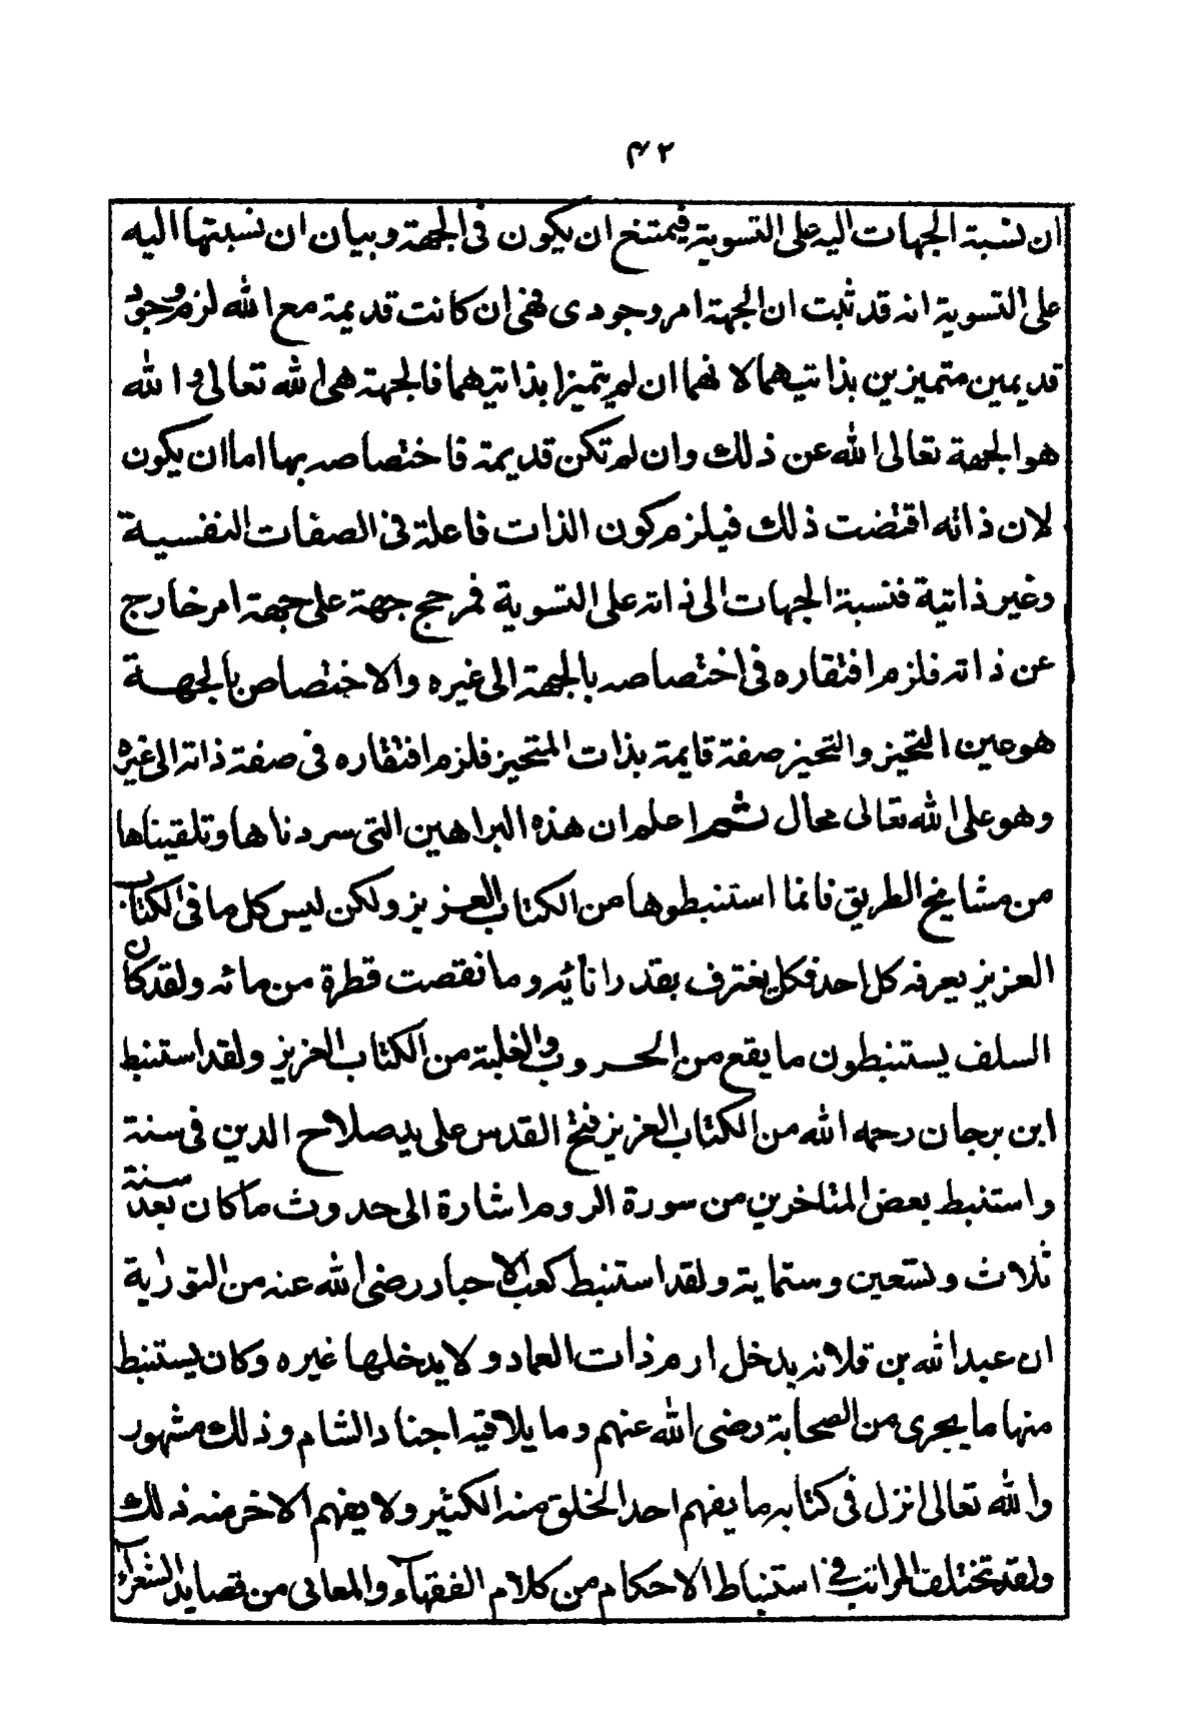 ٤٢
ان نسبة الجهات اليه على التسوية فيمتنع ان يكون فى الجهة وبيان ان نسبتها اليه
على التسوية انه قد ثبت ان الجهة امر وجودى فهى ان كانت قديمة مع الله لزم وجود
قديمين متميزين بذاتيهما لانهما ان لم يتميزا بذاتيهما فالجهة هى الله تعالى والله
هو الجهة تعالى الله عن ذلك وان لم تكن قديمة فاختصاصه بها اما ان يكون
لان ذاته اقتضت ذلك فيلزم كون الذات فاعلة فى الصفات النفسية
وغير ذاتية فنسبة الجهات الى ذاته على التسوية فمرجح جهة على جهة امر خارج
عن ذاته فلزم افتقاره فى اختصاصه بالجهة الى غيره والاختصاص بالجهة
هو عين التحيز والتحيز صفة قايمة بذات المتحيز فلزم افتقاره فى صفة ذاته الى غيره
وهو على الله تعالى محال ثم اعلم ان هذه البراهين التى سردناها وتلقيناها
من مشايخ الطريق فانما استنبطوها من الكتاب العزيز ولكن ليس كل ما فى الكتاب
العزيز يعرفه كل احد فكل يغترف بقدر انائه وما نقصت قطرة من مائه ولقد كان
السلف يستنبطون ما يقع من الحروب والغلبة من الكتاب العزيز ولقد استنبط
ابن برجان رحمه الله من الكتاب العزيز فتح القدس على يد صلاح الدين فى سنة
واستنبط بعض المتاخرين من سورة الروم اشارة الى حدوث ما كان بعد سنة
ثلاث وتسعين وستماية ولقد استنبط كعب الاحبار رضى الله عنه من التوراية
ان عبد الله بن قلابة يدخل ارم ذات العماد ولا يدخلها غيره وكان يستنبط
منها ما يجرى من الصحابة رضى الله عنهم وما يلاقيه اجناد الشام وذلك مشهور
والله تعالى انزل فى كتابه ما يفهم احد الخلق منه الكثير ولا يفهم الاخر منه ذلك
ولقد تختلف المراتب فى استنباط الاحكام من كلام الفقهآء والمعانى من قصايد الشعرآء